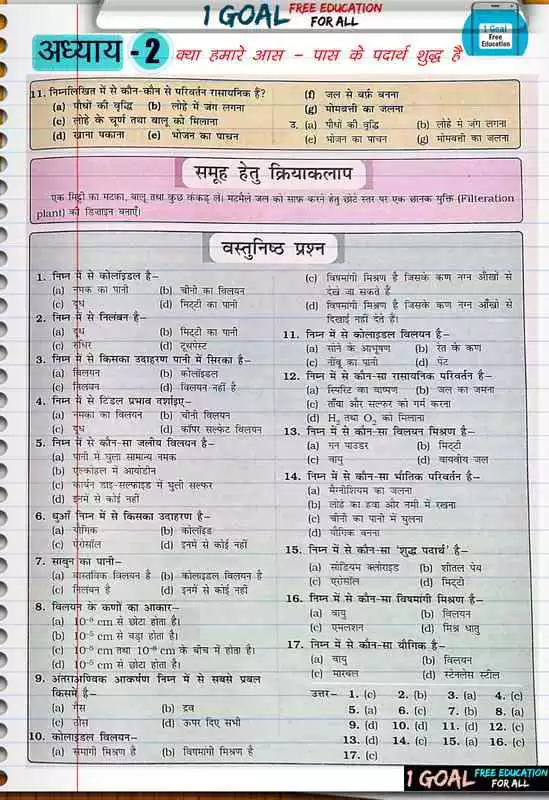 1 GOAL FREE EDUCATION FOR ALL
1 Goal
Free
Education
अध्याय - 2 क्या हमारे आस - पास के पदार्थ शुद्ध है
11. निम्नलिखित में से कौन-कौन से परिवर्तन रासायनिक हैं?
(a) पौधों की वृद्धि (b) लोहे में जंग लगना
(c) लोहे के चूर्ण तथा बालू को मिलाना
(d) खाना पकाना (e) भोजन का पाचन
(f) जल से बर्फ़ बनना
(g) मोमबत्ती का जलना
उ. (a) पौधों की वृद्धि (b) लोहे में जंग लगना
(e) भोजन का पाचन (g) मोमबत्ती का जलना
समूह हेतु क्रियाकलाप
एक मिट्टी का मटका, बालू तथा कुछ कंकड़ लें। मटमैले जल को साफ़ करने हेतु छोटे स्तर पर एक छानक युक्ति (Filteration
plant) का डिज़ाइन बनाएँ।
वस्तुनिष्ठ प्रश्न
1. निम्न में से कोलॉइडल है–
(a) नमक का पानी (b) चीनी का विलयन
(c) दूध (d) मिट्टी का पानी
2. निम्न में से निलंबन है–
(a) दूध (b) मिट्टी का पानी
(c) रुधिर (d) टूथपेस्ट
3. निम्न में से किसका उदाहरण पानी में सिरका है–
(a) विलयन (b) कोलॉइडल
(c) निलंबन (d) विलयन नहीं है
4. निम्न में से टिंडल प्रभाव दर्शाइए–
(a) नमका का विलयन (b) चीनी विलयन
(c) दूध (d) कॉपर सल्फेट विलयन
5. निम्न में से कौन-सा जलीय विलयन है–
(a) पानी में घुला सामान्य नमक
(b) एल्कोहल में आयोडीन
(c) कार्बन डाइ-सल्फाइड में घुली सल्फर
(d) इनमें से कोई नहीं
6. धुआँ निम्न में से किसका उदाहरण है–
(a) यौगिक (b) कोलॉइड
(c) ऐरोसॉल (d) इनमें से कोई नहीं
7. साबुन का पानी–
(a) वास्तविक विलयन है (b) कोलाइडल विलयन है
(c) निलंबन है (d) इनमें से कोई नहीं
8. विलयन के कणों का आकार–
(a) 10⁻⁹ cm से छोटा होता है।
(b) 10⁻⁵ cm से बड़ा होता है।
(c) 10⁻⁵ cm तथा 10⁻⁸ cm के बीच में होता है।
(d) 10⁻⁵ cm से छोटा होता है।
9. अंतराअण्विक आकर्षण निम्न में से सबसे प्रबल
किसमें है–
(a) गैस (b) द्रव
(c) ठोस (d) ऊपर दिए सभी
10. कोलाइडल विलयन–
(a) समांगी मिश्रण है (b) विषमांगी मिश्रण है
(c) विषमांगी मिश्रण है जिसके कण नग्न आँखों से
देखे जा सकते हैं
(d) विषमांगी मिश्रण है जिसके कण नग्न आँखों से
दिखाई नहीं देते हैं।
11. निम्न में से कोलाइडल विलयन है–
(a) सोने के आभूषण (b) रेत के कण
(c) नींबू का पानी (d) पेंट
12. निम्न में से कौन-सा रासायनिक परिवर्तन है–
(a) स्पिरिट का वाष्पण (b) जल का जमना
(c) ताँबा और सल्फर को गर्म करना
(d) H₂ तथा O₂ को मिलाना
13. निम्न में से कौन-सा विलयन मिश्रण है–
(a) गन पाउडर (b) मिट्टी
(c) वायु (d) वायवीय जल
14. निम्न में से कौन-सा भौतिक परिवर्तन है–
(a) मैग्नीशियम का जलना
(b) लोहे का हवा और नमी में रखना
(c) चीनी का पानी में घुलना
(d) यौगिक बनना
15. निम्न में से कौन-सा 'शुद्ध पदार्थ' है–
(a) सोडियम क्लोराइड (b) शीतल पेय
(c) एरोसॉल (d) मिट्टी
16. निम्न में से कौन-सा विषमांगी मिश्रण है–
(a) वायु (b) विलयन
(c) एमलशन (d) मिश्र धातु
17. निम्न में से कौन-सा यौगिक है–
(a) वायु (b) विलयन
(c) मारबल (d) स्टेनलेस स्टील
उत्तर– 1. (c) 2. (b) 3. (a) 4. (c)
5. (a) 6. (c) 7. (b) 8. (a)
9. (d) 10. (d) 11. (d) 12. (c)
13. (d) 14. (c) 15. (a) 16. (c)
17. (c)
1 GOAL FREE EDUCATION FOR ALL